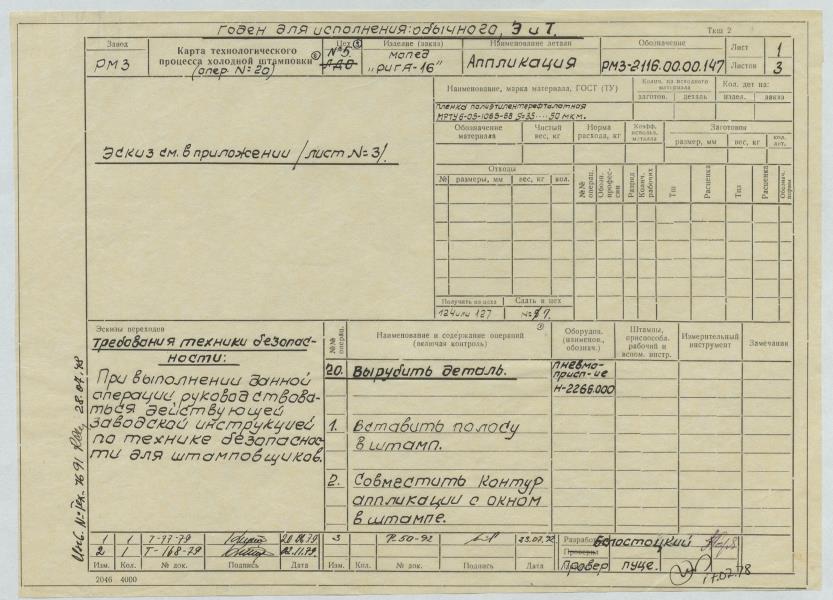 Годен для исполнения: обычного, Э и Т.
Ткш 2
Завод
РМЗ
Карта технологического
процесса холодной штамповки
(опер. №20)
Цех
№5.
Изделие (заказ)
мопед
„Рига-16"
Наименование детали
Аппликация
Обозначение
РМЗ-2116.00.00.147
Лист 1
Листов 3
Эскиз см. в приложении /лист №3/.
Наименование, марка материала, ГОСТ (ТУ)
Колич. из исходного
материала
Кол. дет на:
заготов. деталь издел. заказ
Пленка полиэтилентерефталатная
МРТУ 6-05-1065-68 S=35....50 мкм.
Обозначение
материала
Чистый
вес, кг
Норма
расхода, кг
Коэфф.
использ.
металла
Заготовки
размер, мм вес, кг кол.
дет.
Отходы
№ размеры, мм вес, кг кол.
№№
операц.
Обозн.
профес-
сии
Разряд
Колич.
рабочих
Тш
Расценка
Тпз
Расценка
Обознач.
нормы
Получить из цеха
Сдать в цех
124 или 127
№ 7.
Эскизы переходов
Требования техники безопас-
ности:
При выполнении данной
операции руководствова-
ться действующей
заводской инструкцией
по технике безопаснос-
ти для штамповщиков.
№№
операц.
Наименование и содержание операций
(включая контроль)
Оборудов.
(наименов.,
обознач.)
Штампы,
приспособл.
рабочий и
вспом. инстр.
Измерительный
инструмент
Замечания
20. Вырубить деталь.
Пневмо-
присп-ие
Н-2266.000
1. Вставить полосу
в штамп.
2. Совместить контур
аппликации с окном
в штампе.
1 1 Т-77-79
2 1 Т-168-79 02.11.79
3 Р.50-92 23.07.92
Изм. Кол. № док. Подпись Дата
Изм. Кол. № док. Подпись Дата
Разработ. Белостоцкий
Провер Пуце.
17.07.78
2046 4000
28.07.78